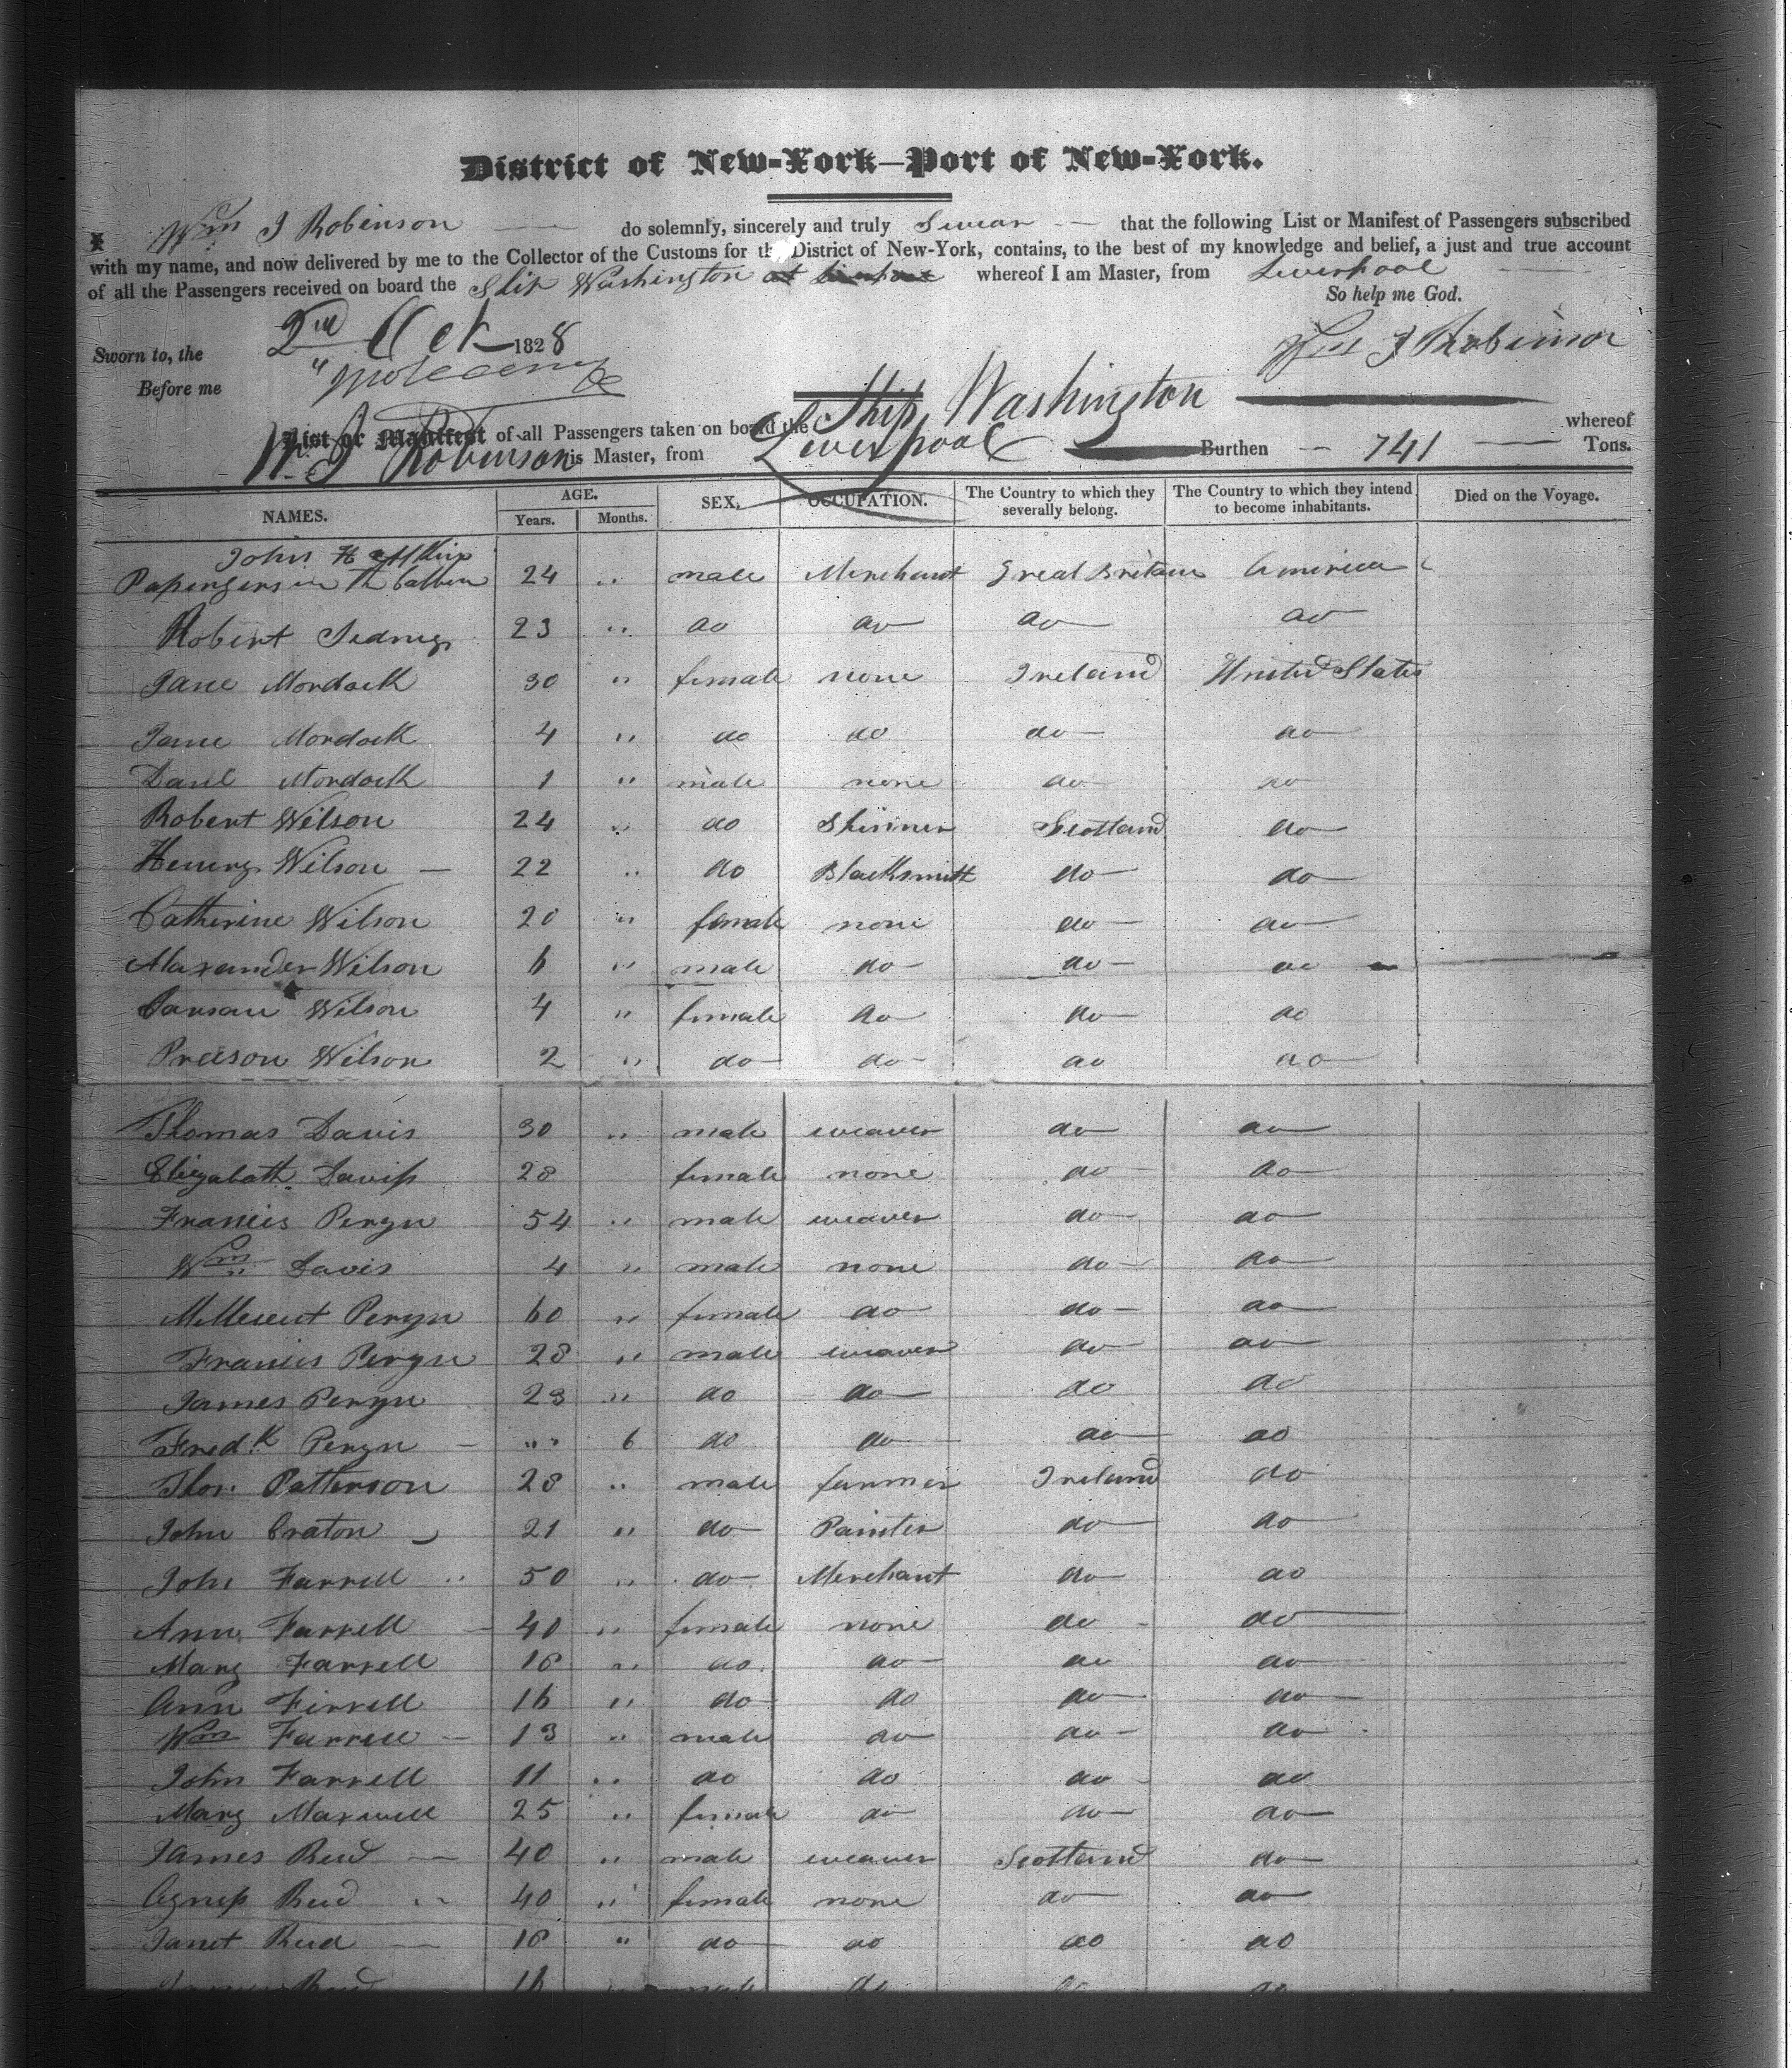 District of New-York—Port of New-York.
I Wm J Robinson do solemnly, sincerely and truly Swear that the following List or Manifest of Passengers subscribed
with my name, and now delivered by me to the Collector of the Customs for the District of New-York, contains, to the best of my knowledge and belief, a just and true account
of all the Passengers received on board the Ship Washington whereof I am Master, from Liverpool
So help me God.
Sworn to, the 2nd Oct 1828
Wm J Robinson
Before me
List or Manifest of all Passengers taken on board the Ship Washington whereof
W. J. Robinson is Master, from Liverpool Burthen 741 Tons.
NAMES. AGE. Years. Months. SEX. OCCUPATION. The Country to which they severally belong. The Country to which they intend to become inhabitants. Died on the Voyage.
John H
Pasengers in 24 " male Merchant Great Britain America
Robert 23 " do do do do
Jane Mordock 30 " female none Ireland United States
Jane Mordock 4 " do do do do
Danl Mordock 1 " male none do do
Robert Wilson 24 " do Skinner Scotland do
Henery Wilson 22 " do Blacksmith do do
Catherine Wilson 20 " female none do do
Alaxander Wilson 6 " male do do do
Wilson 4 " female do do do
Wilson 2 " do do do do
Thomas Davis 30 " male weaver do do
Elizabath Daviss 28 female none do do
Francis Peryn 54 " male weaver do do
Wm Davis 4 " male none do do
Peryn 60 " female do do do
Francis Peryn 28 " male weaver do do
James Peryn 23 " do do do do
Fredk Peryn " 6 do do do do
Thos. Patterson 28 " male farmer Ireland do
John Craton 21 " do Painter do do
John Farrell 50 " do Merchant do do
Ann Farrell 40 " female none do do
Mary Farrell 18 " do do do do
Ann Firrell 16 " do do do do
Wm Farrell 13 " male do do do
John Farrell 11 " do do do do
Mary Maxwell 25 " female do do do
James Reid 40 " male weaver Scotland do
Agness Reid 40 " female none do do
Janet Reid 18 " do do do do
Reid 16 " male do do do